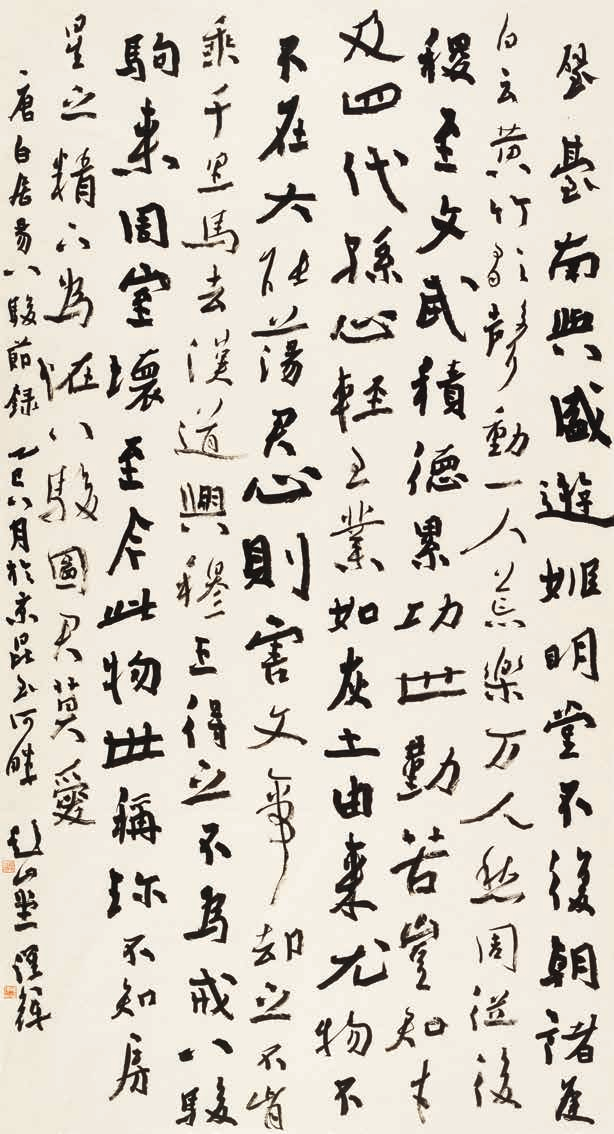 璧臺南與盛遊姬明堂不復朝諸侯
白云黄竹歌聲動一人荒樂万人愁周從後
稷至文武積德累功世勤苦豈知才
及四代孫心輕王業如灰土由来尤物不
不在大能蕩君心則害文帝却之不肯
乘千里馬去漢道興穆王得之不為戒八駿
駒来周室壞至今此物世稱珎不知房
星之精下為怪八駿圖君莫愛
唐白居易八駿節録乙巳八月於京昆玉河畔